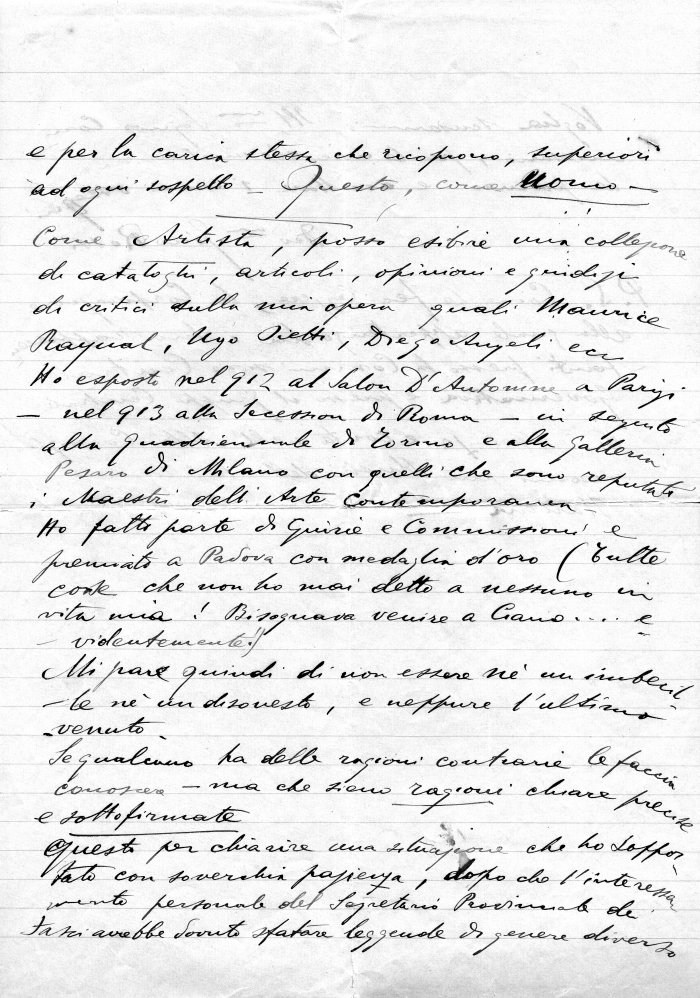 e per la carica stessa che ricoprono, superiori
ad ogni sospetto — Questo, come uomo —
Come Artista, posso esibire una collezione
di cataloghi, articoli, opinioni e giudizi
di critici sulla mia opera quali Maurice
Raynal, Ugo Ojetti, Diego Angeli ecc
Ho esposto nel 912 al Salon D'Automne a Parigi
— nel 913 alla Secession di Roma — in seguito
alla Quadriennale di Torino e alla Galleria
Pesaro di Milano con quelli che sono reputati
i Maestri dell'Arte Contemporanea —
Ho fatto parte di Giurie e Commissioni e
premiato a Padova con medaglia d'oro (Tutte
cose che non ho mai detto a nessuno in
vita mia! Bisognava venire a Ciano.... e-
- videntemente!)
Mi pare quindi di non essere nè un imbecil-
-le nè un disonesto, e neppure l'ultimo
venuto-
Se qualcuno ha delle ragioni contrarie le faccia
conoscere — ma che sieno ragioni chiare precise
e sottofirmate
Questo per chiarire una situazione che ho soppor-
tato con soverchia pazienza, dopo che l'interessa
mento personale del Segretario Provinciale dei
Fasci avrebbe dovuto sfatare leggende di genere diverso